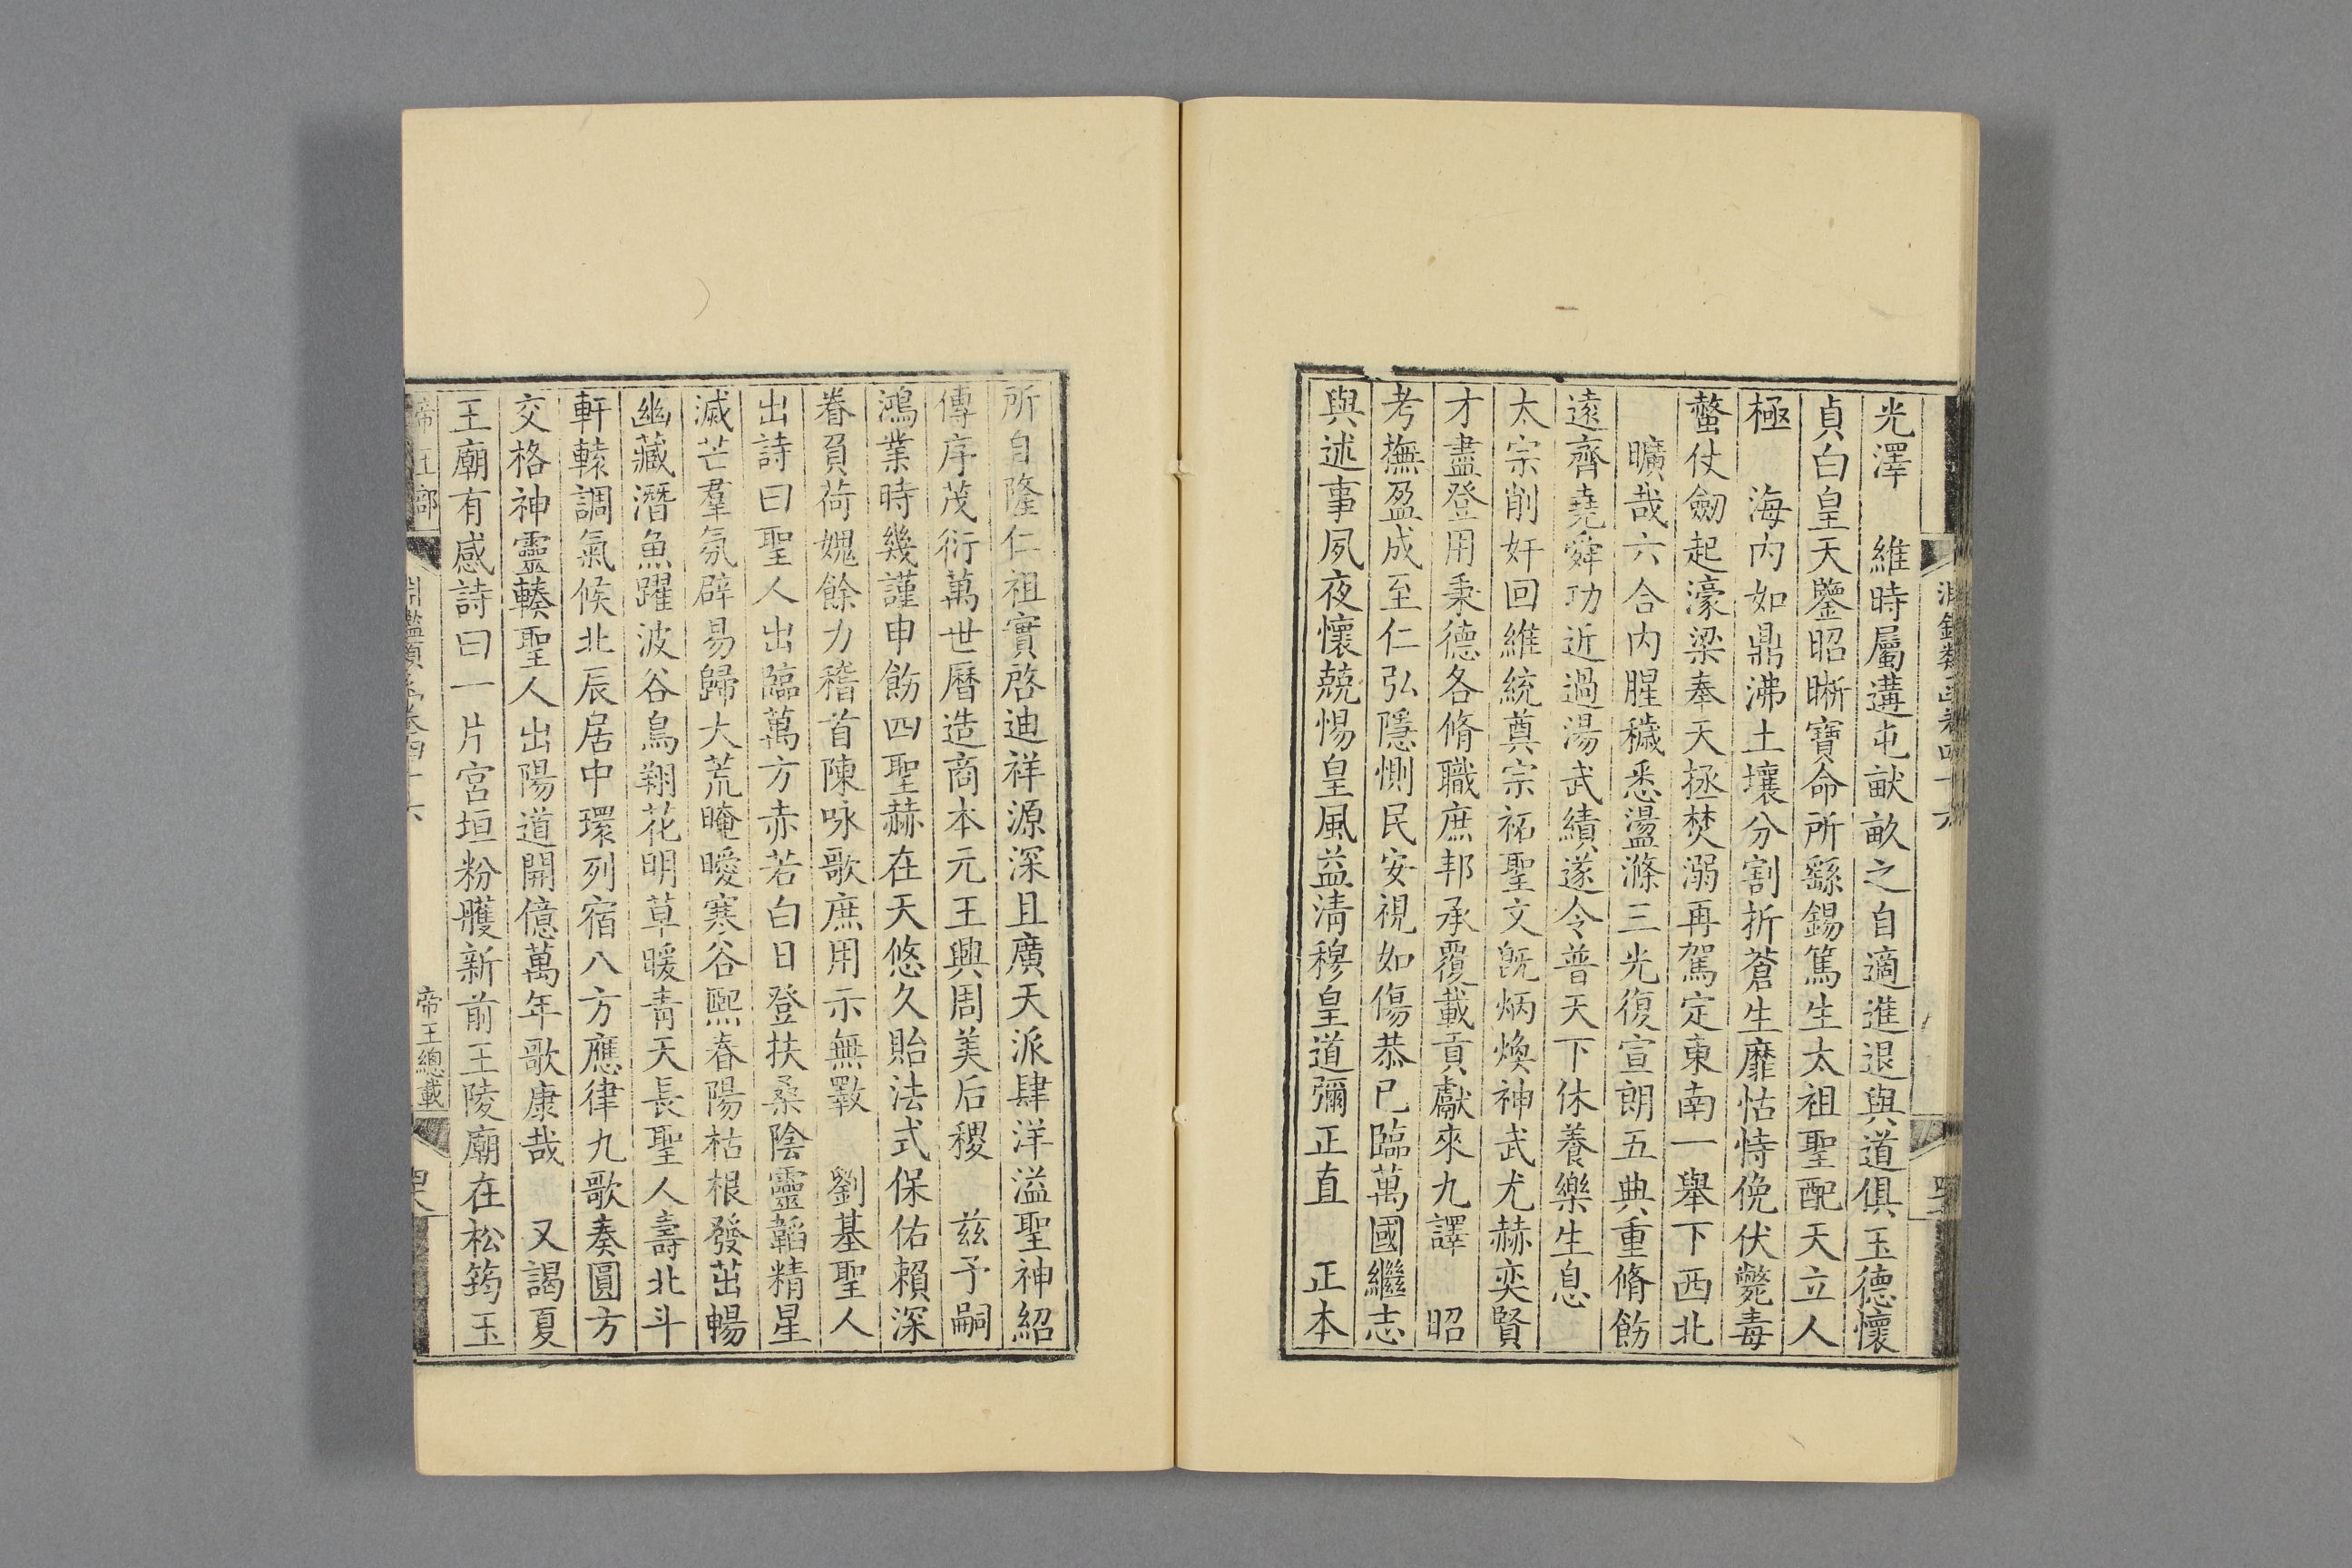 光澤　維時屬遘屯畎畝之自適進退與道俱玉德懷
貞白皇天鑒昭晣寶命所繇錫篤生太祖聖配天立人
極　海內如鼎沸土壤分割折蒼生靡怙恃俛伏斃毒
螫仗劒起濠梁奉天拯焚溺再駕定東南一舉下西北
曠哉六合內腥穢悉盪滌三光復宣朗五典重脩飭
遠齊堯舜功近過湯武績遂令普天下休養樂生息
太宗削奸回維統奠宗祏聖文旣炳煥神武尤赫奕賢
才盡登用秉德各脩職庶邦承覆載貢獻來九譯　昭
考撫盈成至仁弘隱惻民安視如傷恭已臨萬國繼志
與述事夙夜懷兢惕皇風益淸穆皇道彌正直　正本
所自隆仁祖實啓迪祥源深且廣天派肆洋溢聖神紹
傳序茂衍萬世曆造商本元王興周美后稷　茲予嗣
鴻業時幾謹申飭四聖赫在天悠久貽法式保佑賴深
眷負荷媿餘力稽首陳咏歌庶用示無斁　劉基聖人
出詩曰聖人出臨萬方赤若白日登扶桑陰靈韜精星
滅芒羣氛辟易歸大荒晻曖寒谷熙春陽枯根發茁暢
幽藏潛魚躍波谷鳥翔花明草暖靑天長聖人壽北斗
軒轅調氣候北辰居中環列宿八方應律九歌奏圓方
交格神靈輳聖人出陽道開億萬年歌康哉　又謁夏
王廟有感詩曰一片宮垣粉雘新前王陵廟在松筠玉
帝王部
淵鑑類函卷四十六
帝王總載